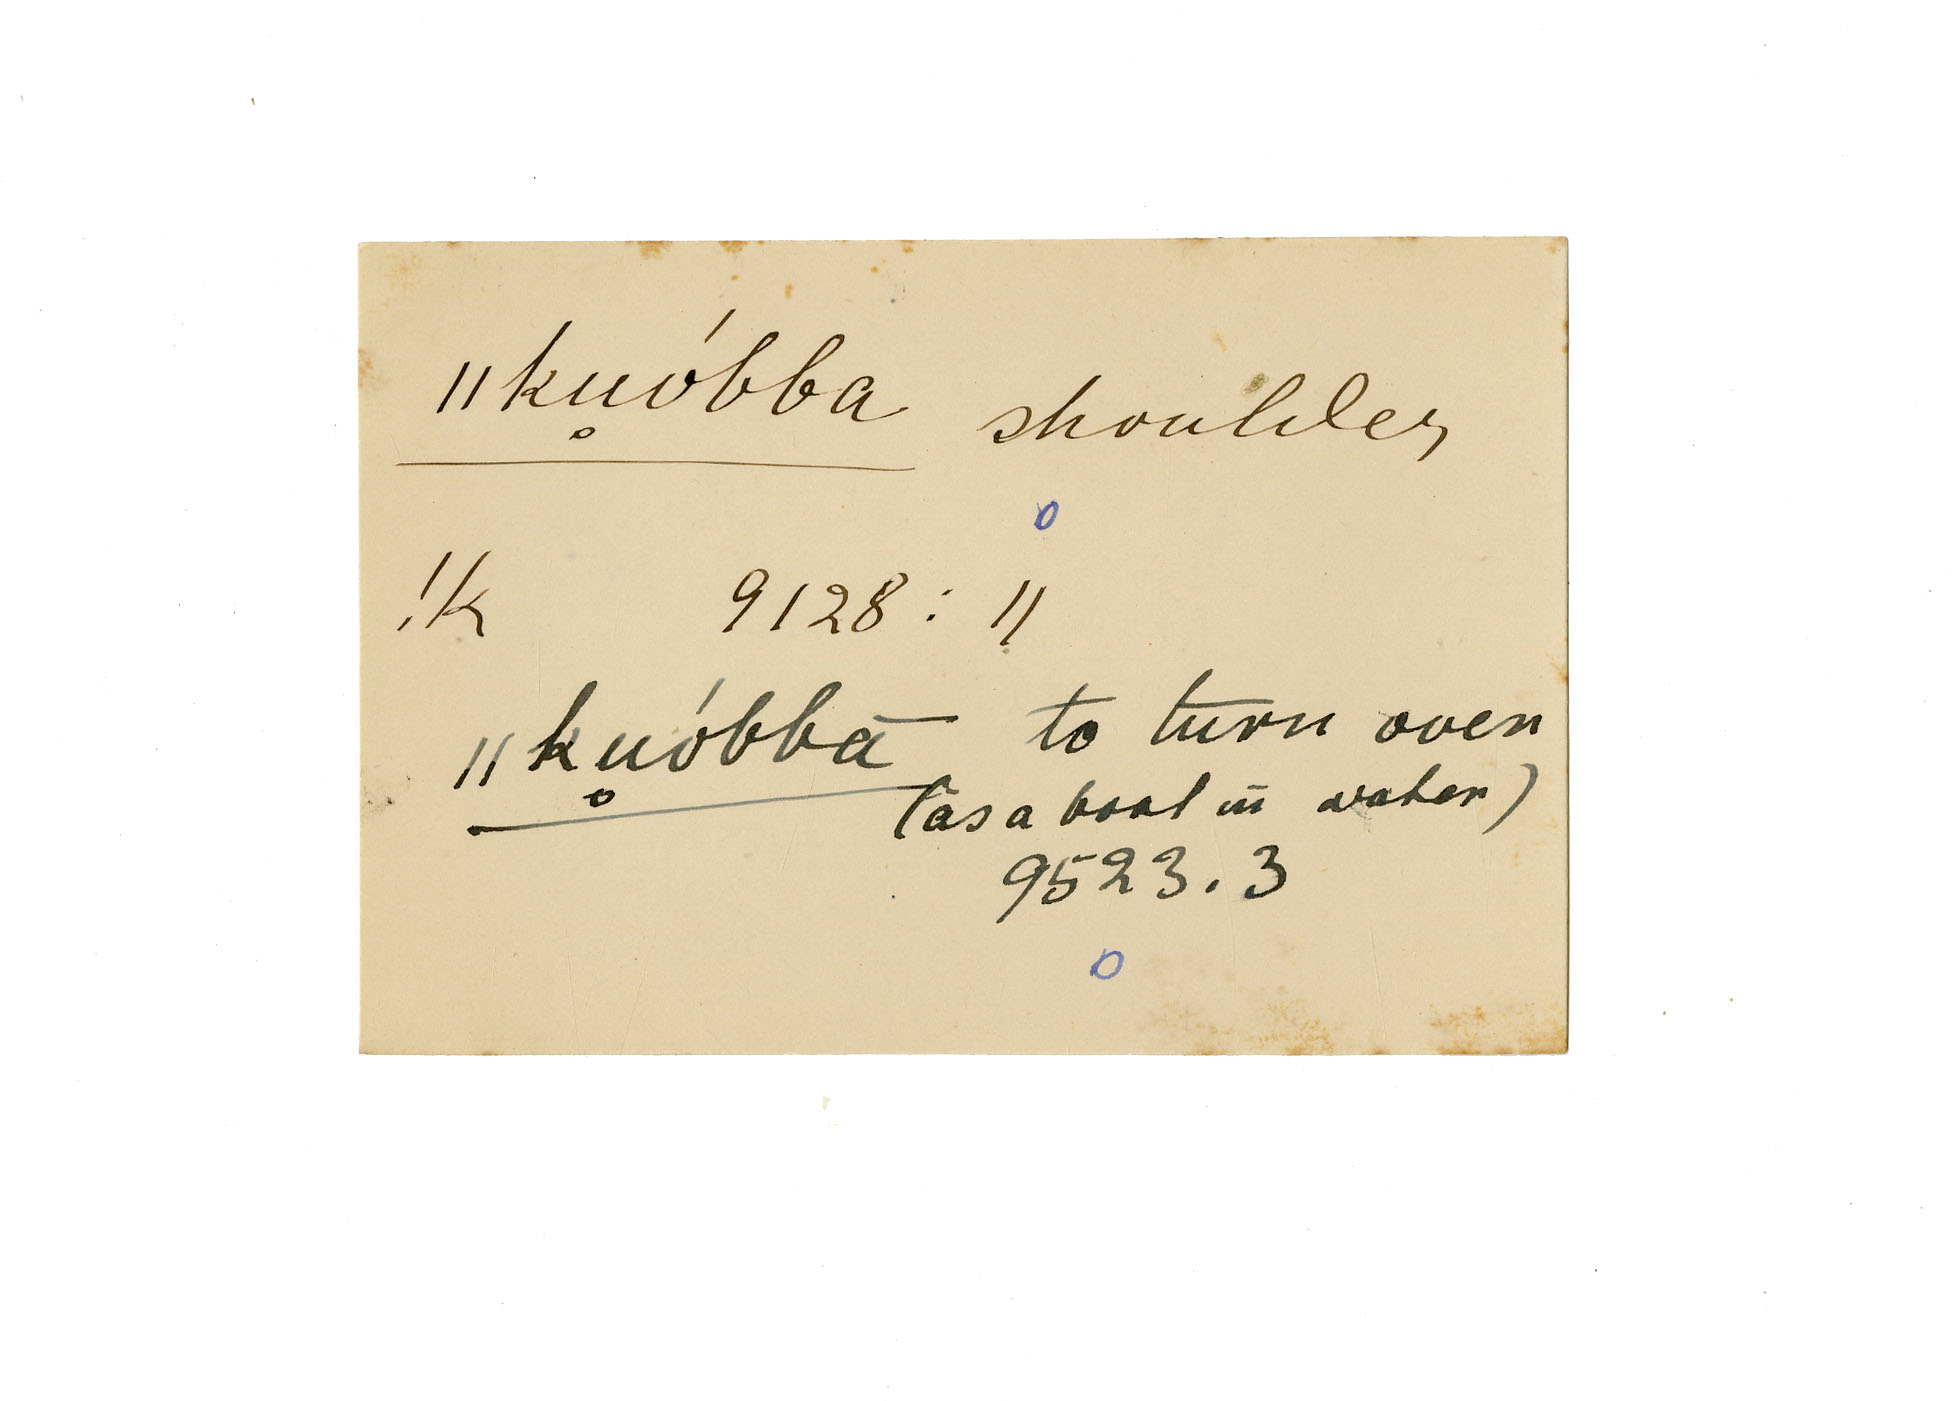 ǁku̥óbba shoulder
o
!k 9128 : 11
ǁku̥óbbā to turn over
(as a boat in water)
9523. 3
o